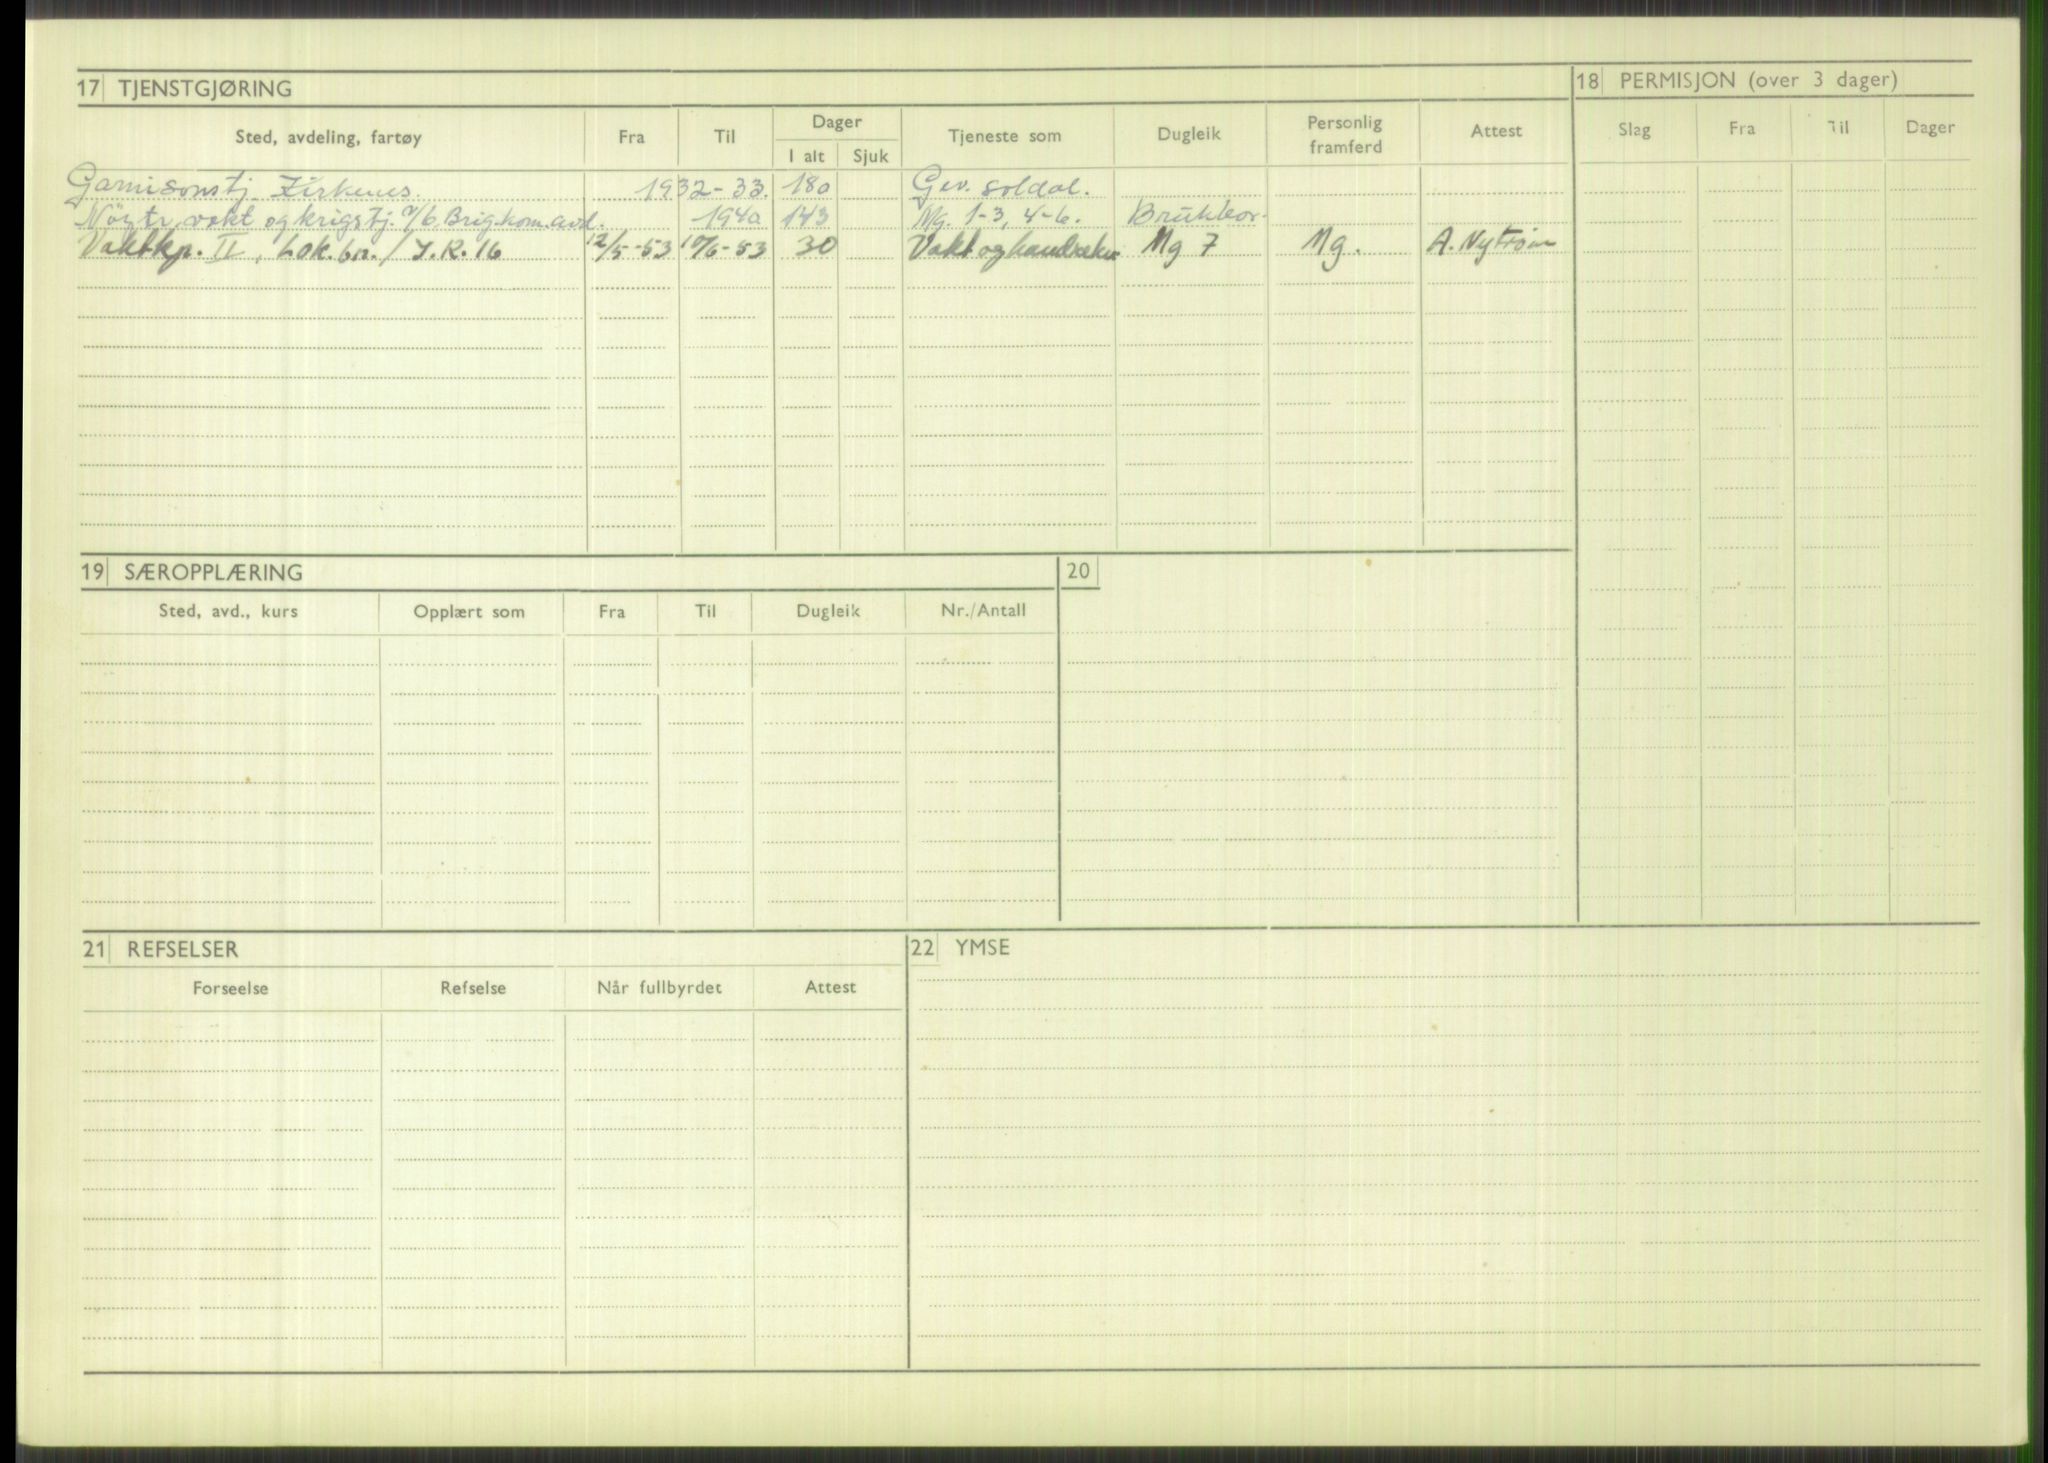 17 TJENSTGJØRING
18 PERMISJON (over 3 dager)
Sted, avdeling, fartøy Fra Til Dager I alt Sjuk Tjeneste som Dugleik Personlig framferd Attest
Slag Fra Til Dager
Garnisonstj. Kirkenes. 1932-33. 180 Gev. soldat.
Nöytr. vakt og krigstj. /6. Brig.kom.avd. 1940 143 Mg. 1-3, 4-6. Brukbar.
Vaktkp. II, Lok.bn./I.R.16 12/5-53 10/6-53 30 Vakt og Mg 7 Mg. A. Nytrøm
19 SÆROPPLÆRING
20
Sted, avd., kurs Opplært som Fra Til Dugleik Nr./Antall
21 REFSELSER
22 YMSE
Forseelse Refselse Når fullbyrdet Attest